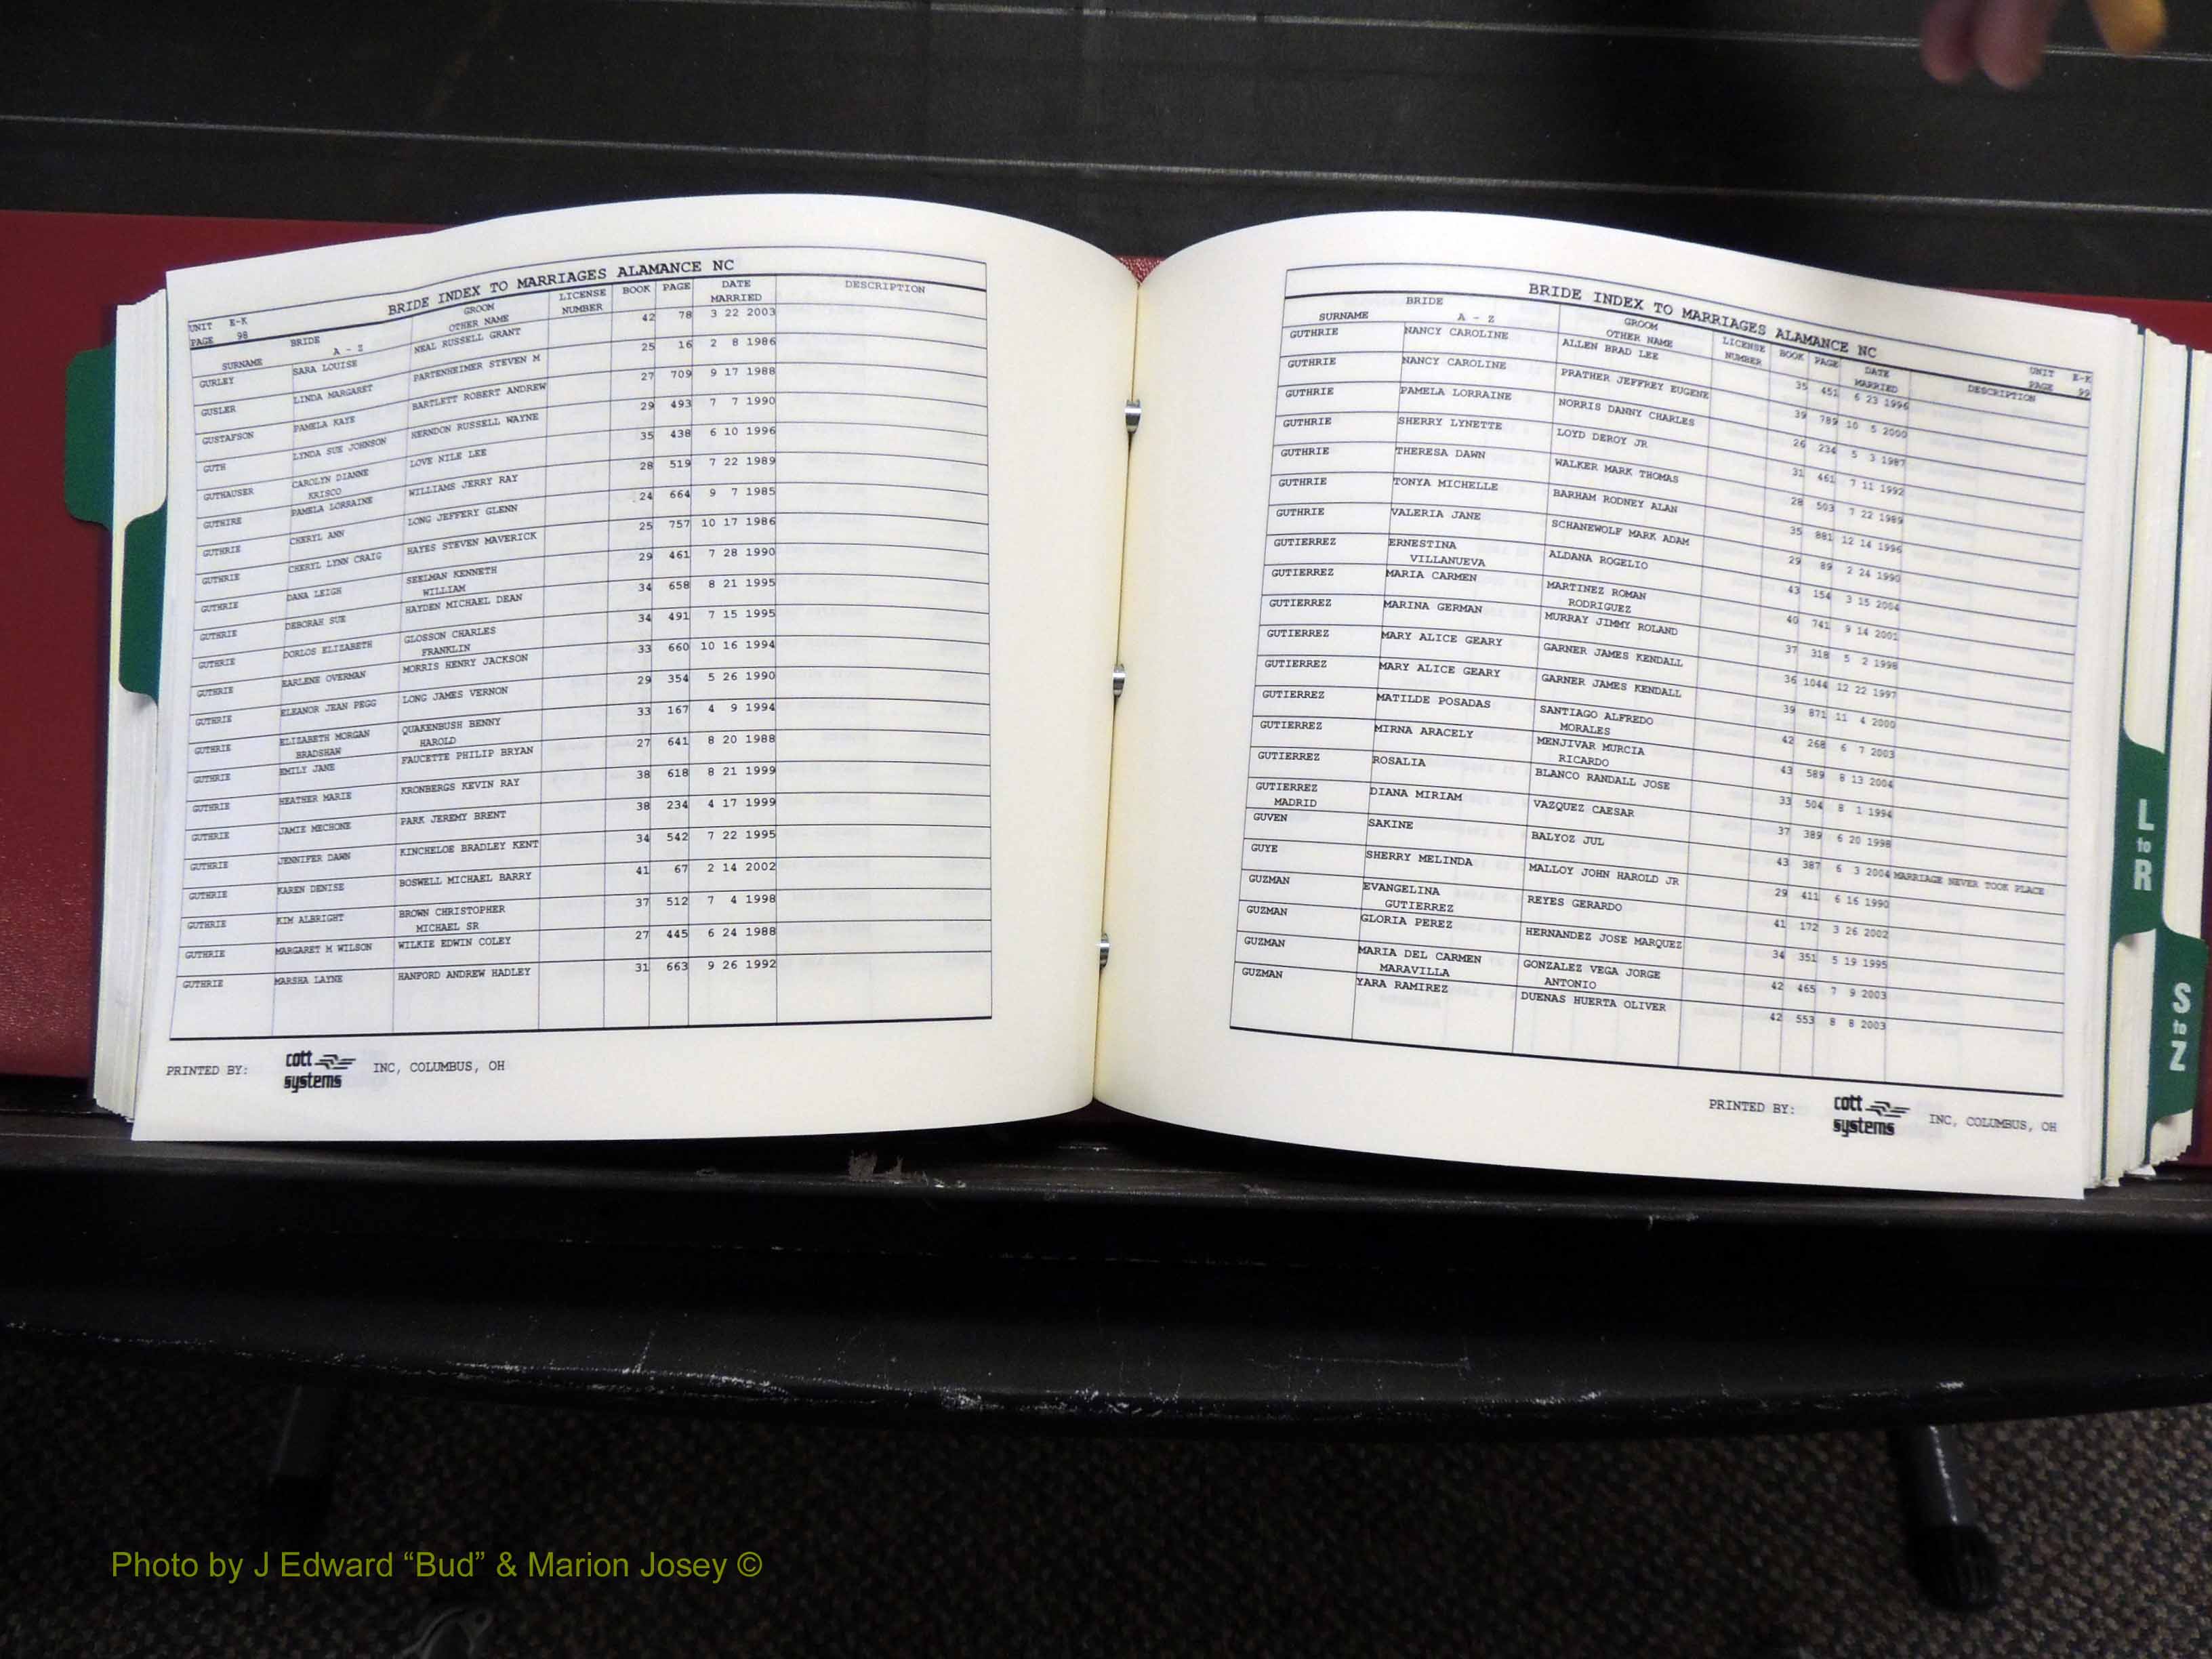 BRIDE INDEX TO MARRIAGES ALAMANCE NC
UNIT E-K
PAGE 98
SURNAME BRIDE A - Z GROOM OTHER NAME LICENSE NUMBER BOOK PAGE DATE MARRIED DESCRIPTION
GURLEY SARA LOUISE NEAL RUSSELL GRANT 42 78 3 22 2003
GUSLER LINDA MARGARET PARTENHEIMER STEVEN M 25 16 2 8 1986
GUSTAFSON PAMELA KAYE BARTLETT ROBERT ANDREW 27 709 9 17 1988
GUTH LYNDA SUE JOHNSON HERNDON RUSSELL WAYNE 29 493 7 7 1990
GUTHAUSER CAROLYN DIANNE LOVE NILE LEE 35 438 6 10 1996
KRISCO
GUTHIRE PAMELA LORRAINE WILLIAMS JERRY RAY 28 519 7 22 1989
GUTHRIE CHERYL ANN LONG JEFFERY GLENN 24 664 9 7 1985
GUTHRIE CHERYL LYNN CRAIG HAYES STEVEN MAVERICK 25 757 10 17 1986
GUTHRIE DANA LEIGH SEELMAN KENNETH 29 461 7 28 1990
WILLIAM
GUTHRIE DEBORAH SUE HAYDEN MICHAEL DEAN 34 658 8 21 1995
GUTHRIE DORLOS ELIZABETH GLOSSON CHARLES 34 491 7 15 1995
FRANKLIN
GUTHRIE EARLENE OVERMAN MORRIS HENRY JACKSON 33 660 10 16 1994
GUTHRIE ELEANOR JEAN PEGG LONG JAMES VERNON 29 354 5 26 1990
GUTHRIE ELIZABETH MORGAN QUAKENBUSH BENNY 33 167 4 9 1994
BRADSHAW HAROLD
GUTHRIE EMILY JANE FAUCETTE PHILIP BRYAN 27 641 8 20 1988
GUTHRIE HEATHER MARIE KRONBERGS KEVIN RAY 38 618 8 21 1999
GUTHRIE JAMIE MECHONE PARK JEREMY BRENT 38 234 4 17 1999
GUTHRIE JENNIFER DAWN KINCHELOE BRADLEY KENT 34 542 7 22 1995
GUTHRIE KAREN DENISE BOSWELL MICHAEL BARRY 41 67 2 14 2002
GUTHRIE KIM ALBRIGHT BROWN CHRISTOPHER 37 512 7 4 1998
MICHAEL SR
GUTHRIE MARGARET M WILSON WILKIE EDWIN COLEY 27 445 6 24 1988
GUTHRIE MARSHA LAYNE HANFORD ANDREW HADLEY 31 663 9 26 1992
PRINTED BY: cott systems INC, COLUMBUS, OH
BRIDE INDEX TO MARRIAGES ALAMANCE NC
UNIT E-K
PAGE 99
SURNAME BRIDE A - Z GROOM OTHER NAME LICENSE NUMBER BOOK PAGE DATE MARRIED DESCRIPTION
GUTHRIE NANCY CAROLINE ALLEN BRAD LEE 35 451 6 23 1996
GUTHRIE NANCY CAROLINE PRATHER JEFFREY EUGENE 39 789 10 5 2000
GUTHRIE PAMELA LORRAINE NORRIS DANNY CHARLES 26 234 5 3 1987
GUTHRIE SHERRY LYNETTE LOYD DEROY JR 31 461 7 11 1992
GUTHRIE THERESA DAWN WALKER MARK THOMAS 28 503 7 22 1989
GUTHRIE TONYA MICHELLE BARHAM RODNEY ALAN 35 881 12 14 1996
GUTHRIE VALERIA JANE SCHANEWOLF MARK ADAM 29 89 2 24 1990
GUTIERREZ ERNESTINA ALDANA ROGELIO 43 154 3 15 2004
VILLANUEVA
GUTIERREZ MARIA CARMEN MARTINEZ ROMAN 40 741 9 14 2001
RODRIGUEZ
GUTIERREZ MARINA GERMAN MURRAY JIMMY ROLAND 37 318 5 2 1998
GUTIERREZ MARY ALICE GEARY GARNER JAMES KENDALL 36 1044 12 22 1997
GUTIERREZ MARY ALICE GEARY GARNER JAMES KENDALL 39 871 11 4 2000
GUTIERREZ MATILDE POSADAS SANTIAGO ALFREDO 42 268 6 7 2003
MORALES
GUTIERREZ MIRNA ARACELY MENJIVAR MURCIA 43 589 8 13 2004
RICARDO
GUTIERREZ ROSALIA BLANCO RANDALL JOSE 33 504 8 1 1994
GUTIERREZ DIANA MIRIAM VAZQUEZ CAESAR 37 389 6 20 1998
MADRID
GUVEN SAKINE BALYOZ JUL 43 387 6 3 2004 MARRIAGE NEVER TOOK PLACE
GUYE SHERRY MELINDA MALLOY JOHN HAROLD JR 29 411 6 16 1990
GUZMAN EVANGELINA REYES GERARDO 41 172 3 26 2002
GUTIERREZ
GUZMAN GLORIA PEREZ HERNANDEZ JOSE MARQUEZ 34 351 5 19 1995
GUZMAN MARIA DEL CARMEN GONZALEZ VEGA JORGE 42 465 7 9 2003
MARAVILLA ANTONIO
GUZMAN YARA RAMIREZ DUENAS HUERTA OLIVER 42 553 8 8 2003
PRINTED BY: cott systems INC, COLUMBUS, OH
L to R
S to Z
Photo by J Edward “Bud” & Marion Josey ©